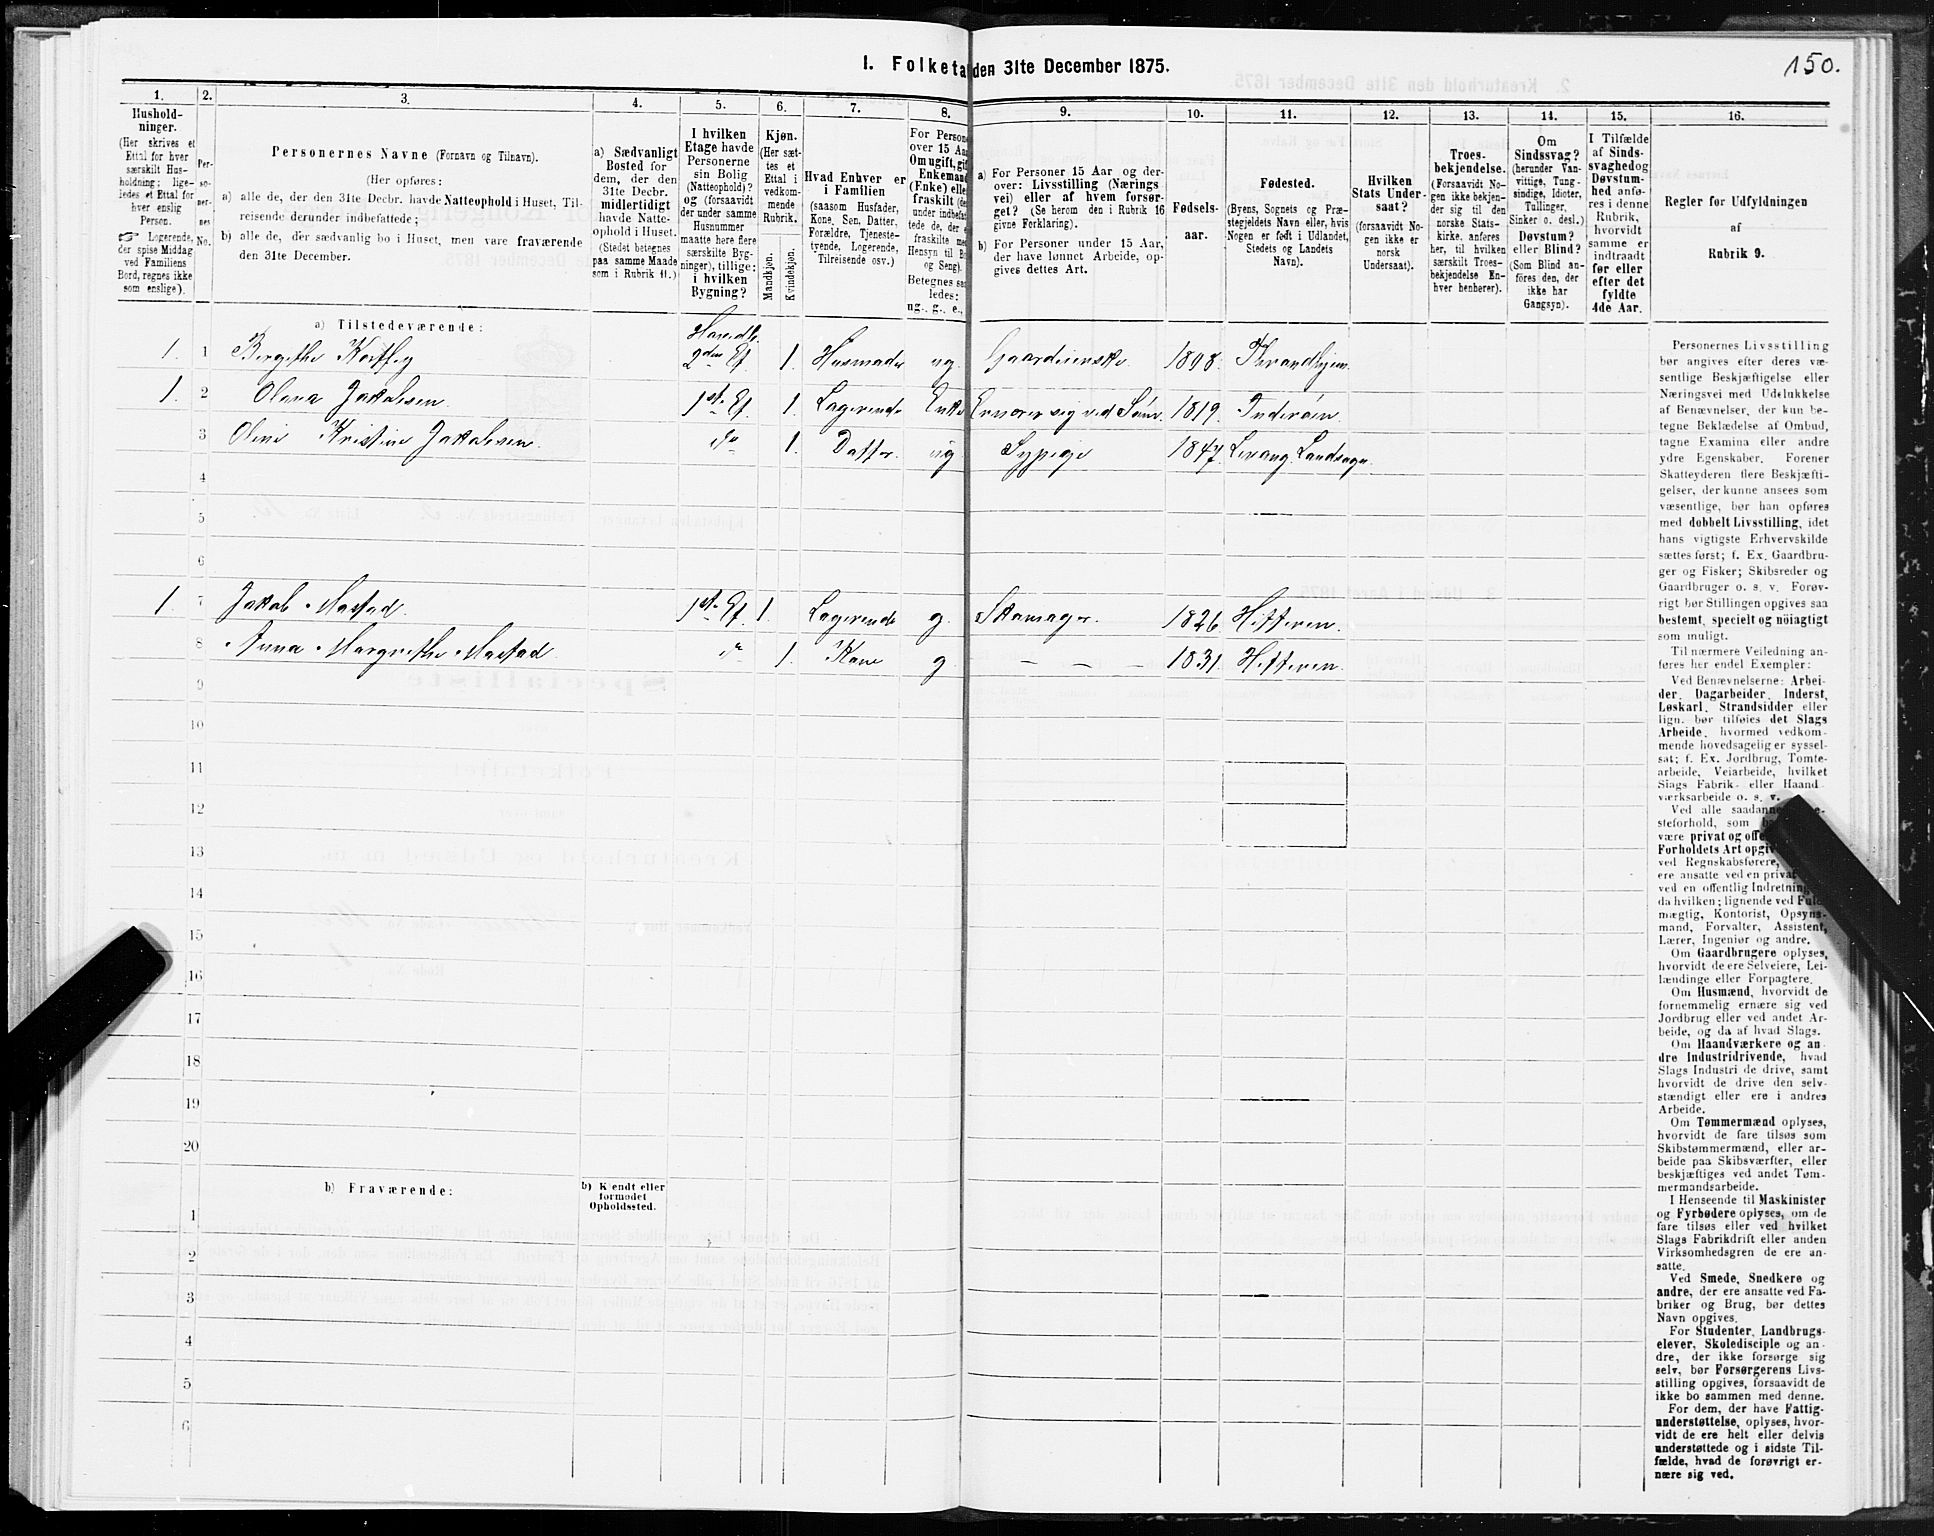 150.
I. Folketal den 31te December 1875.
1. 2. 3. 4. 5. 6. 7. 8. 9. 10. 11. 12. 13. 14. 15. 16.
Hushold-
ninger.
(Her skrives et
Ettal for hver
særskilt Hus-
holdning; lige-
ledes et Ettal for
hver enslig
Person.
☞ Logerende,
der spise Middag
ved Familiens
Bord, regnes ikke
som enslige).
Per-
so-
ner-
nes
No.
Personernes Navne (Fornavn og Tilnavn).
(Her opføres:
a) alle de, der den 31te Decbr. havde Natteophold i Huset, Til-
reisende derunder indbefattede;
b) alle de, der sædvanlig bo i Huset, men vare fraværende
den 31te December.
a) Sædvanligt
Bosted for
dem, der den
31te Decbr.
midlertidigt
havde Natte-
ophold i Huset.
(Stedet betegnes
paa samme Maade
som i Rubrik 11.)
I hvilken
Etage havde
Personerne
sin Bolig
(Natteophold)?
og (forsaavidt
der under samme
Husnummer
maatte høre flere
særskilte Byg-
ninger), tillige:
i hvilken
Bygning?
Kjøn.
(Her sæt-
tes et
Ettal i
vedkom-
mende
Rubrik.
Mandkjøn.
Kvindekjøn.
Hvad Enhver er
i Familien
(saasom Husfader,
Kone, Søn, Datter,
Forældre, Tjeneste-
tyende, Logerende,
Tilreisende osv.)
For Persone
over 15 Aa
Om ugift, gif
Enkemand
(Enke) elle
fraskilt (de
under indbefa
tede de, der e
fraskilte me
Hensyn til B
og Seng).
Betegnes saa
ledes:
ug., g., e.,
a) For Personer 15 Aar og der-
over: Livsstilling (Nærings
vei) eller af hvem forsør-
get? (Se herom den i Rubrik 16
givne Forklaring).
b) For Personer under 15 Aar,
der have lønnet Arbeide, op-
gives dettes Art.
Fødsels-
aar.
Fødested.
(Byens, Sognets og Præ-
stegjeldets Navn eller, hvis
Nogen er født i Udlandet,
Stedets og Landets
Navn).
Hvilken
Stats Under-
saat?
(forsaavidt No-
gen ikke er
norsk
Undersaat).
Troes-
bekjendelse.
(Forsaavidt No-
gen ikke bekjen-
der sig til den
norske Stats-
kirke, anføres
her, til hvilken
særskilt Troes-
bekjendelse En-
hver henhører).
Om
Sindssvag?
(herunder Van-
vittige, Tung-
sindige, Idioter,
Tullinger,
Sinker o. desl.)
Døvstum?
eller Blind?
(Som Blind an-
føres den, der
ikke har
Gangsyn).
I Tilfælde
af Sinds-
svaghed og
Døvstum-
hed anfø-
res i denne
Rubrik,
hvorvidt
samme er
indtraadt
før eller
efter det
fyldte
4de Aar.
Regler for Udfyldningen
af
Rubrik 9.
a) Tilstedeværende:
1. 1 2den Et. 1. ug. 1808.
1. 2 Olena Jakobsen 1ste Et. 1. Logerende Enke 1819. Inderøen
3 Kristine Jakobsen do 1. Datter. ug Sypige 1847. Levang. Landsogn.
4
5
6
1. 7 Jakob Mastad 1ste Et. 1. Logerende g. Skomager. 1826. Hitteren.
8 Anna Margrethe Mastad do 1. Kone g. – – – 1831. Hitteren.
9
10
11
12
13
14
15
16
17
18
19
20
b) Fraværende:
b) Kjendt eller
formodet
Opholdssted.
1
2
3
4
5
6
Personernes Livsstilling
bør angives efter deres væ-
sentlige Beskjæftigelse eller
Næringsvei med Udelukkelse
af Benævnelser, der kun be-
tegne Beklædelse af Ombud,
tagne Examina eller andre
ydre Egenskaber. Forener
Skatteyderen flere Beskjæfti-
gelser, der kunne ansees som
væsentlige, bør han opføres
med dobbelt Livsstilling, idet
hans vigtigste Erhvervskilde
sættes først; f. Ex. Gaardbru-
ger og Fisker; Skibsreder og
Gaardbruger o. s. v. Forøv-
rigt bør Stillingen opgives saa
bestemt, specielt og nøiagtigt
som muligt.
Til nærmere Veiledning an-
føres her endel Exempler:
Ved Benævnelserne: Arbei-
der, Dagarbeider, Inderst,
Løskarl, Strandsidder eller
lign. bør tilføies det Slags
Arbeide, hvormed vedkom-
mende hovedsagelig er syssel-
sat; f. Ex. Jordbrug, Tomte-
arbeide, Veiarbeide, hvilket
Slags Fabrik- eller Haand-
værksarbeide o. s. v.
Ved alle saadanne
steforhold, som
være privat og
Forholdets Art
ved Regnskabsførere,
ere ansatte ved en
ved en offentlig Indretning
da hvilken; lignende ved
mægtig, Kontorist, Opsyns-
mand, Forvalter, Assistent,
Lærer, Ingeniør og andre.
Om Gaardbrugere oplyses,
hvorvidt de ere Selveiere, Lei-
lændinge eller Forpagtere.
Om Husmænd, hvorvidt de
fornemmelig ernære sig ved
Jordbrug eller ved andet Ar-
beide, og da af hvad Slags.
Om Haandværkere og an-
dre Industridrivende, hvad
Slags Industri de drive, samt
hvorvidt de drive den selv-
stændigt eller ere i andres
Arbeide.
Om Tømmermænd oplyses,
hvorvidt de fare tilsøs som
Skibstømmermænd, eller ar-
beide paa Skibsværfter, eller
beskjæftiges ved andet Tøm-
mermandsarbeide.
I Henseende til Maskinister
og Fyrbødere oplyses, om de
fare tilsøs eller ved hvilket
Slags Fabrikdrift eller anden
Virksomhedsgren de ere an-
satte.
Ved Smede, Snedkere og
andre, der ere ansatte ved Fa-
briker og Brug, bør dettes
Navn opgives.
For Studenter, Landbrugs-
elever, Skoledisciple og an-
dre, der ikke forsørge sig
selv, bør Forsørgerens Livs-
stilling opgives, forsaavidt de
ikke bo sammen med denne.
For dem, der have Fattig-
understøttelse, oplyses, hvor-
vidt de ere helt eller delvis
understøttede og i sidste Til-
fælde, hvad de forøvrigt er-
nære sig ved.